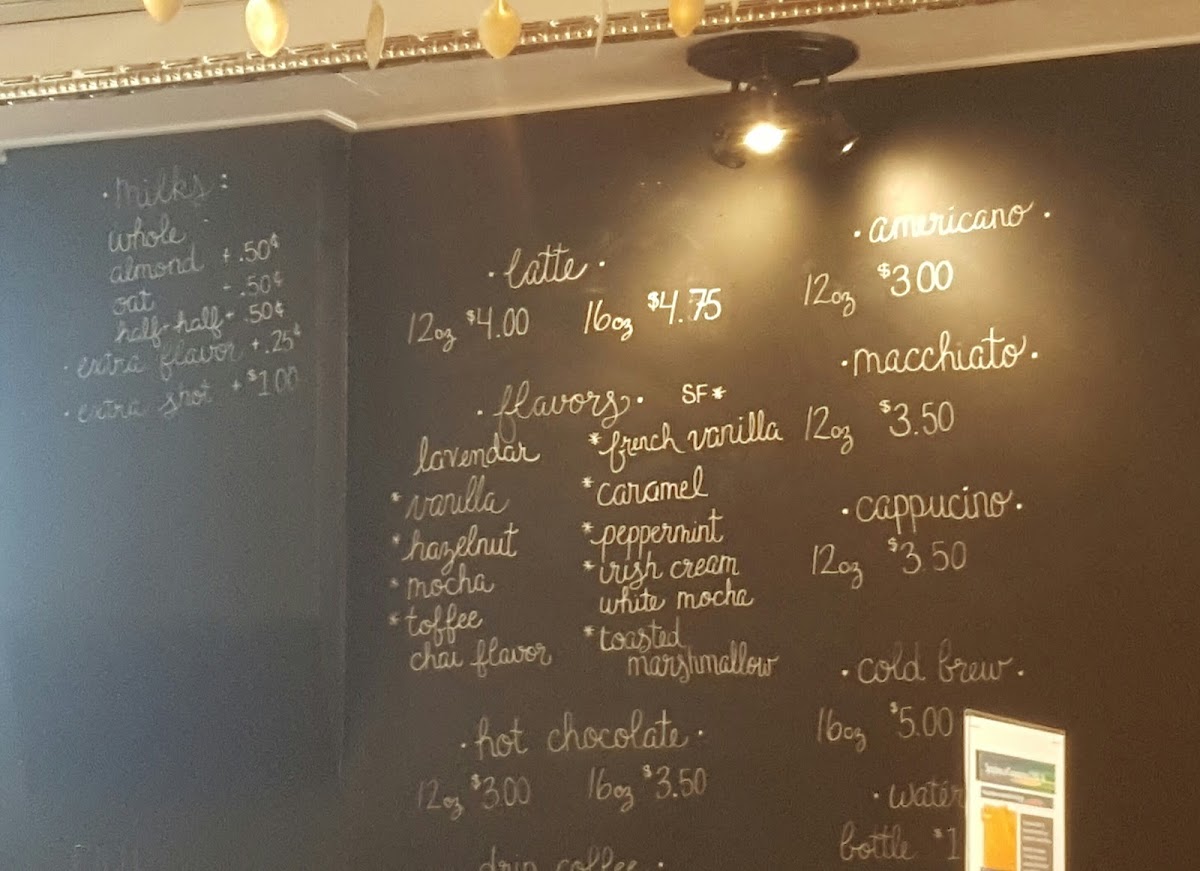 · milks :
whole
almond + .50¢
oat + .50¢
half + half + .50¢
· extra flavor + .25¢
· extra shot + $1.00
· latte ·
12oz $4.00 16oz $4.75
· flavors · SF*
lavendar
*vanilla
*hazelnut
*mocha
*toffee
chai flavor
*french vanilla
*caramel
*peppermint
*irish cream
white mocha
*toasted
marshmallow
· hot chocolate ·
12oz $3.00 16oz $3.50
drip coffee ·
· americano ·
12oz $3.00
· macchiato ·
12oz $3.50
· cappucino ·
12oz $3.50
· cold brew ·
16oz $5.00
· water
bottle $1